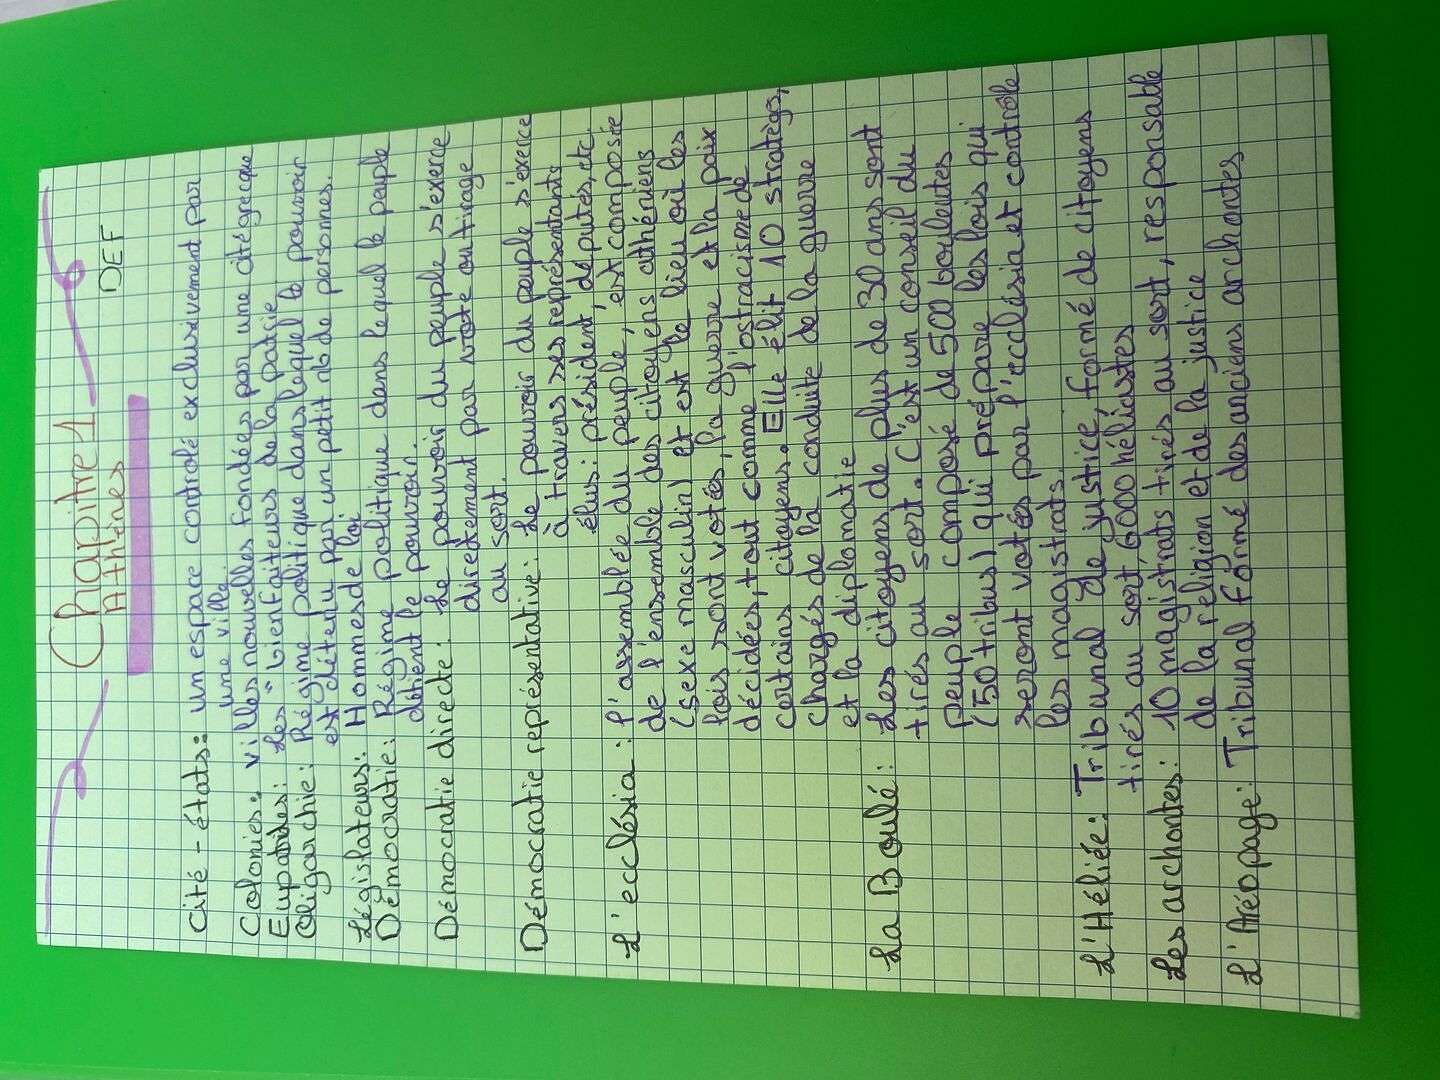 Chapitre 1
Athènes
DEF
Cité-états: un espace controlé exclusivement par
une ville.
Colonies: villes nouvelles fondées par une cité grecque
Eupatrides: Les "bienfaiteurs de la patrie
Oligarchie: Régime politique dans lequel le pouvoir
est détenu par un petit nb de personnes.
Législateurs: Hommes de loi
Démocratie: Régime politique dans lequel le peuple
détient le pouvoir.
Démocratie directe: Le pouvoir du peuple s'exerce
directement par vote ou tirage
au sort.
Démocratie représentative: Le pouvoir du peuple s'exerce
à travers ses représentants
élus: président, députés, etc.
L'ecclésia: l'assemblée du peuple, est composée
de l'ensemble des citoyens athéniens
(sexe masculin) et est le lieu où les
lois sont votées, la guerre et la paix
décidées, tout comme l'ostracisme de
certains citoyens. Elle élit 10 stratèges,
chargés de la conduite de la guerre
et la diplomatie
La Boulé: Les citoyens de plus de 30 ans sont
tirés au sort. C'est un conseil du
peuple composé de 500 bouleutes
(50 tribus) qui prépare les lois qui
seront votés par l'ecclésia et contrôle
les magistrats.
L'Héliée: Tribunal de justice, formé de citoyens
tirés au sort 6000 héliastes
Les archontes: 10 magistrats tirés au sort, responsable
de la religion et de la justice
L'Aréopage: Tribunal formé des anciens archontes